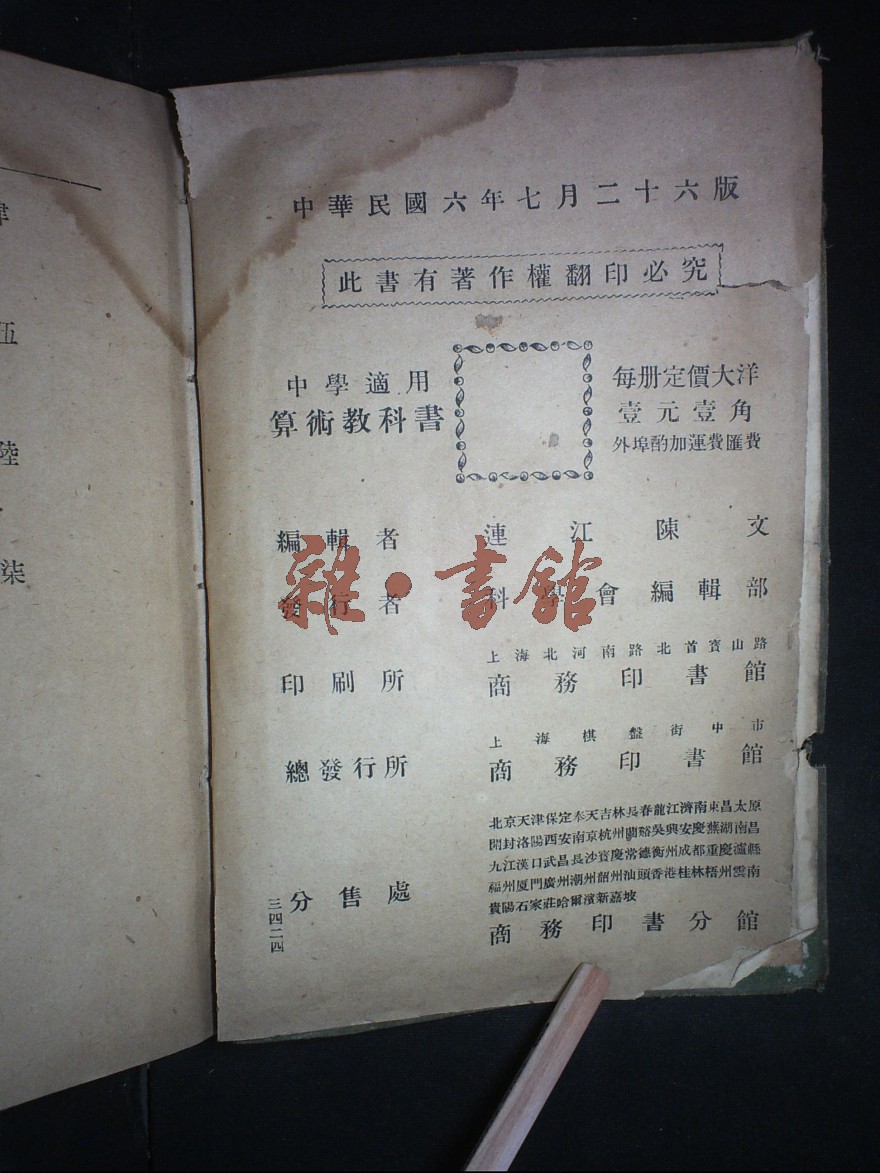 律
伍
陸
柒
中華民國六年七月二十六版
此書有著作權翻印必究
中學適用
算術教科書
每册定價大洋
壹元壹角
外埠酌加運費匯費
編輯者 連江陳文
發行者 科學會編輯部
上海北河南路北首寶山路
印刷所 商務印書館
上海棋盤街中市
總發行所 商務印書館
北京天津保定奉天吉林長春龍江濟南東昌太原
開封洛陽西安南京杭州蘭谿吳興安慶蕪湖南昌
九江漢口武昌長沙寶慶常德衡州成都重慶瀘縣
福州厦門廣州潮州韶州汕頭香港桂林梧州雲南
貴陽石家莊哈爾濱新嘉坡
分售處 商務印書分館
三四二四
雜·書館